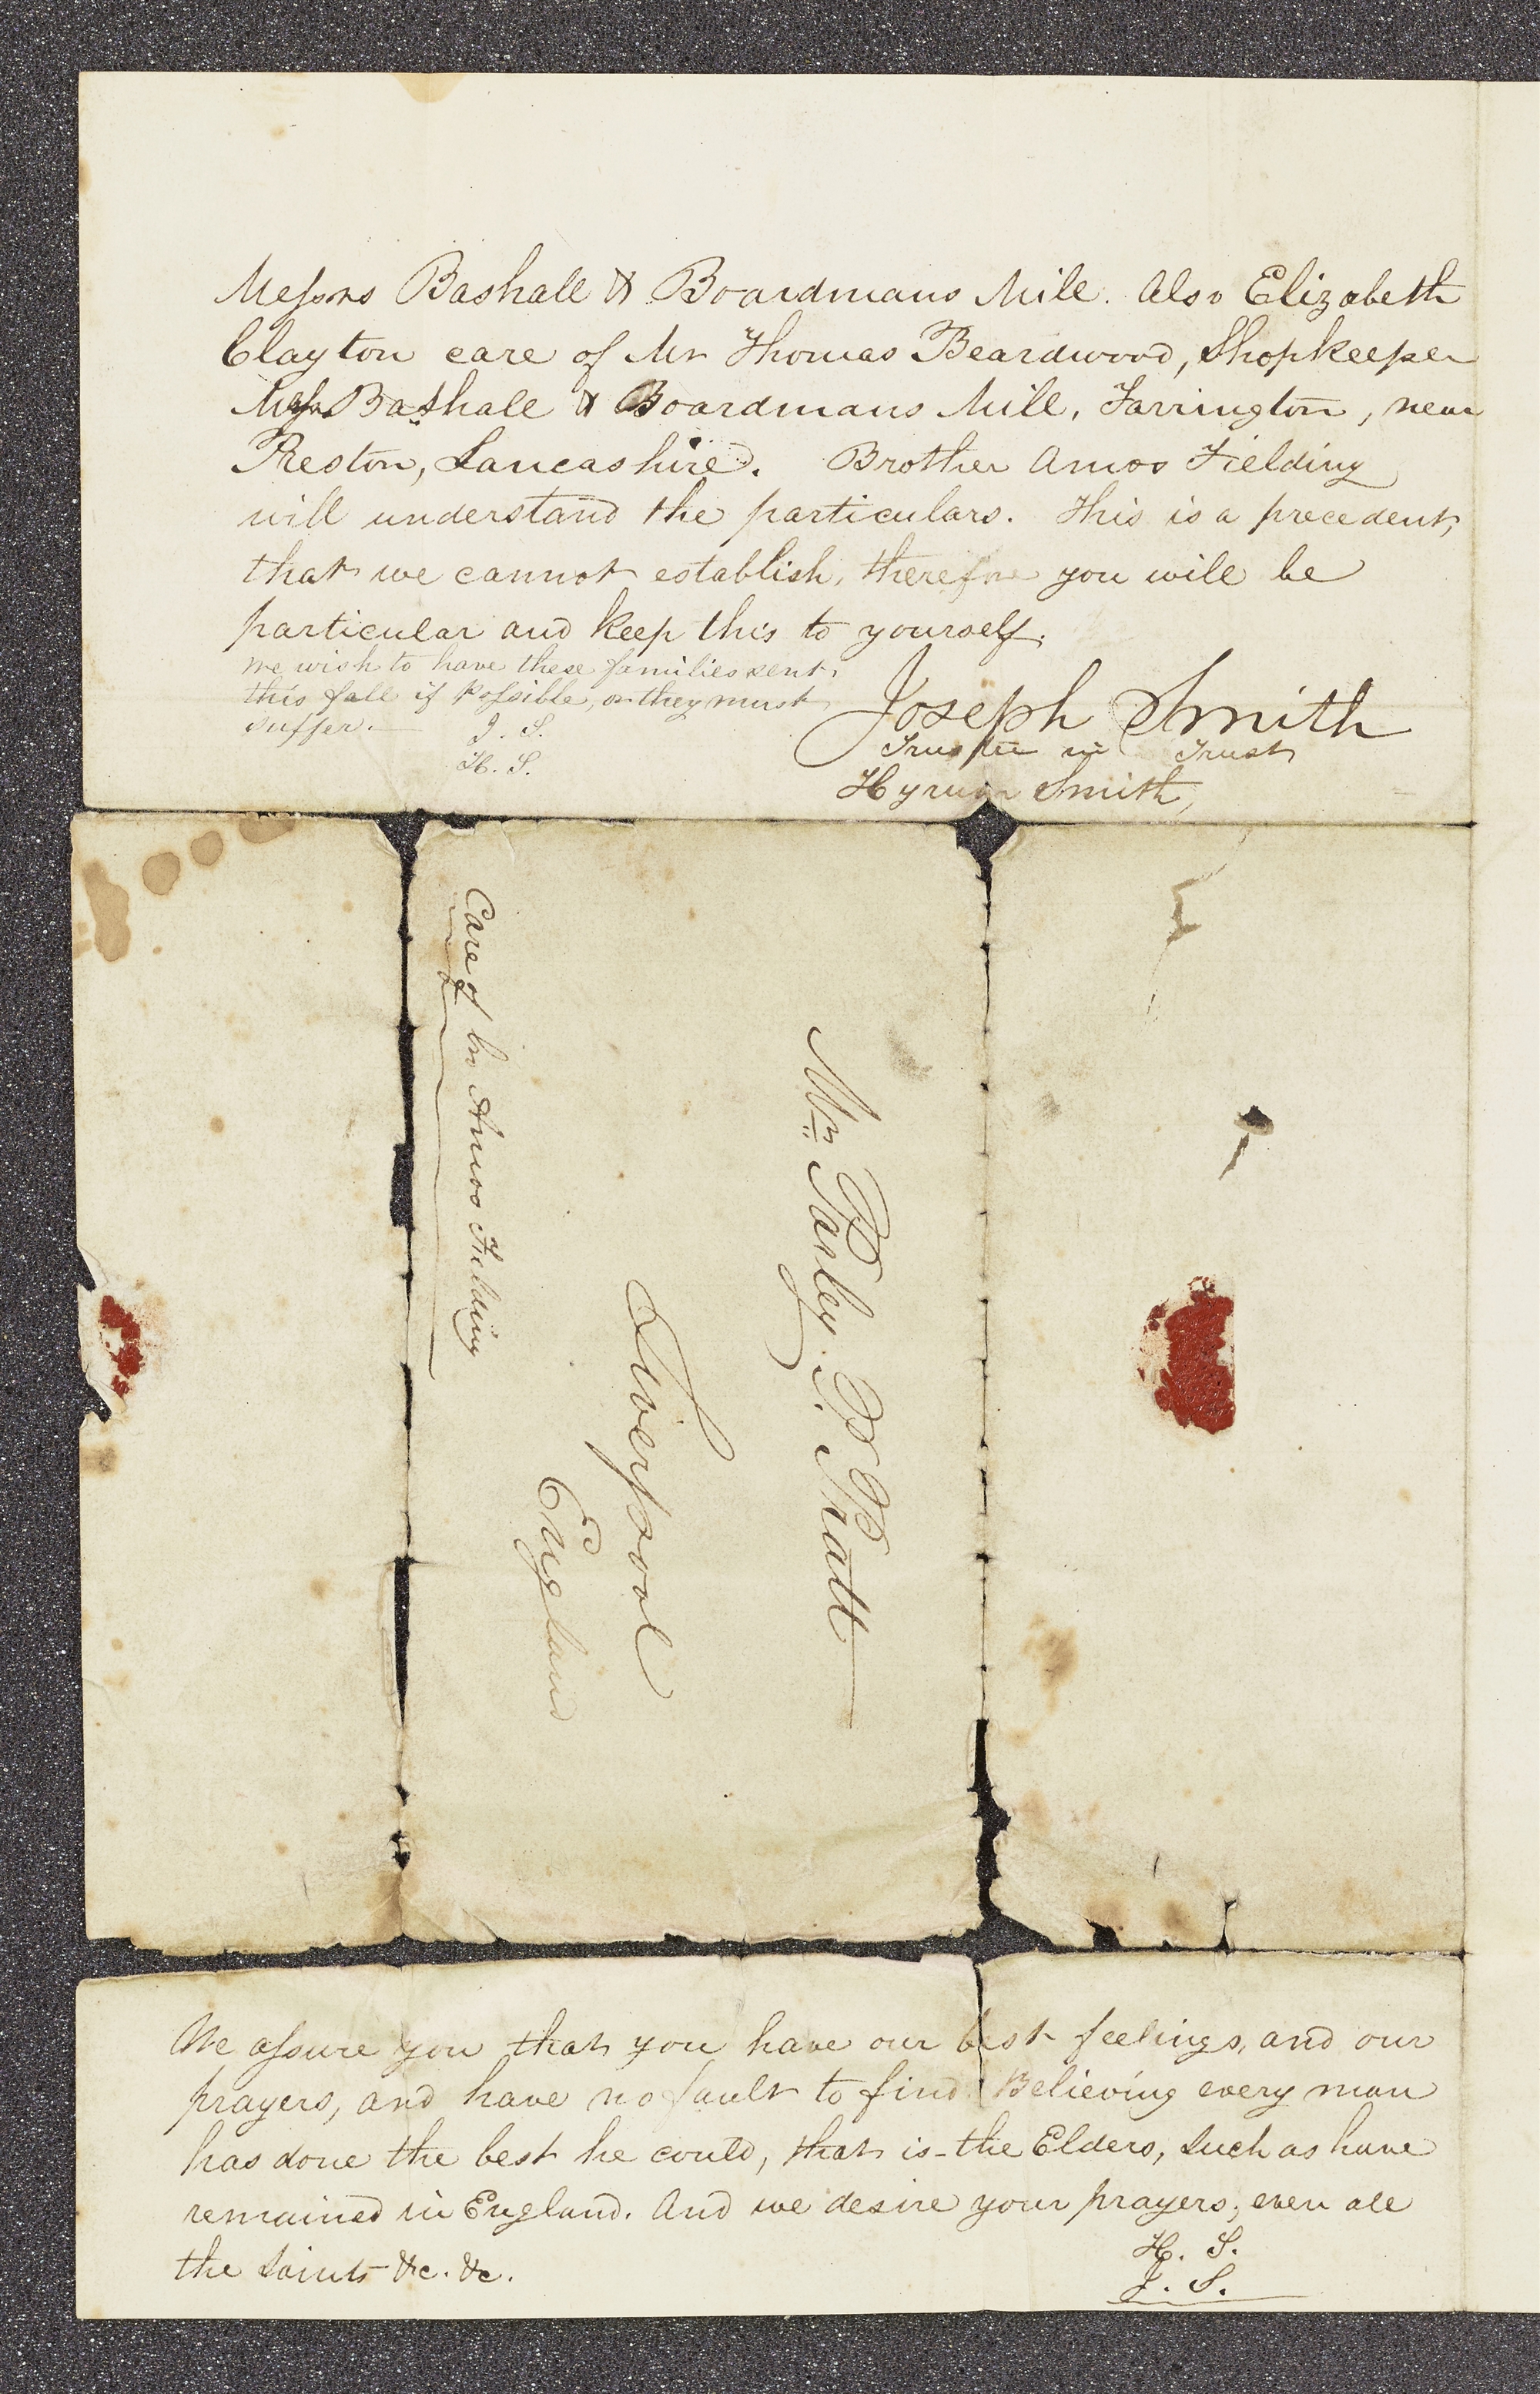 Messrs Bashall & Boardmans Mill. Also Elizabeth
Clayton care of Mr Thomas Beardwood, Shopkeeper
Messrs Bashall & Boardmans Mill, Farrington, near
Preston, Lancashire. Brother Amos Fielding
will understand the particulars. This is a precedent,
that we cannot establish, therefore you will be
particular and keep this to yourself.
We wish to have these families sent
this fall if possible, or they must
suffer.
J. S.
H. S.
Joseph Smith
Trustee in Trust
Hyrum Smith,
Mr Parley. P. Pratt
Liverpool
England
Care of bro Amos Fielding
We assure you that you have our best feelings, and our
prayers, and have no fault to find. Believing every man
has done the best he could, that is the Elders, such as have
remained in England. And we desire your prayers, even all
the Saints &c. &c.
H. S.
J. S.